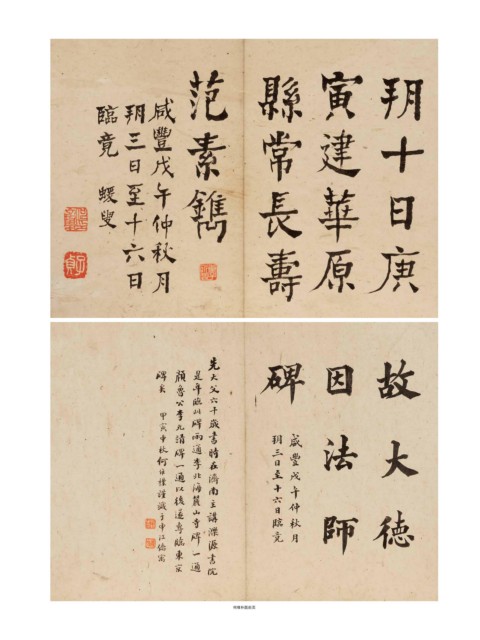 朔十日庚
寅建華原
縣常長壽
范素鐫
咸豐戊午仲秋月
朔三日至十六日
臨竟 蝯叟
故大德
因法師
碑
咸豐戊午仲秋月
朔三日至十六日臨竟
先大父六十歲書時在濟南主講濼源書院
是年臨此碑兩通李北海麓山寺碑一通
顏魯公李元靖碑一通以後遂專臨東京
碑矣 甲寅中秋何維樸謹識于申江僑寓